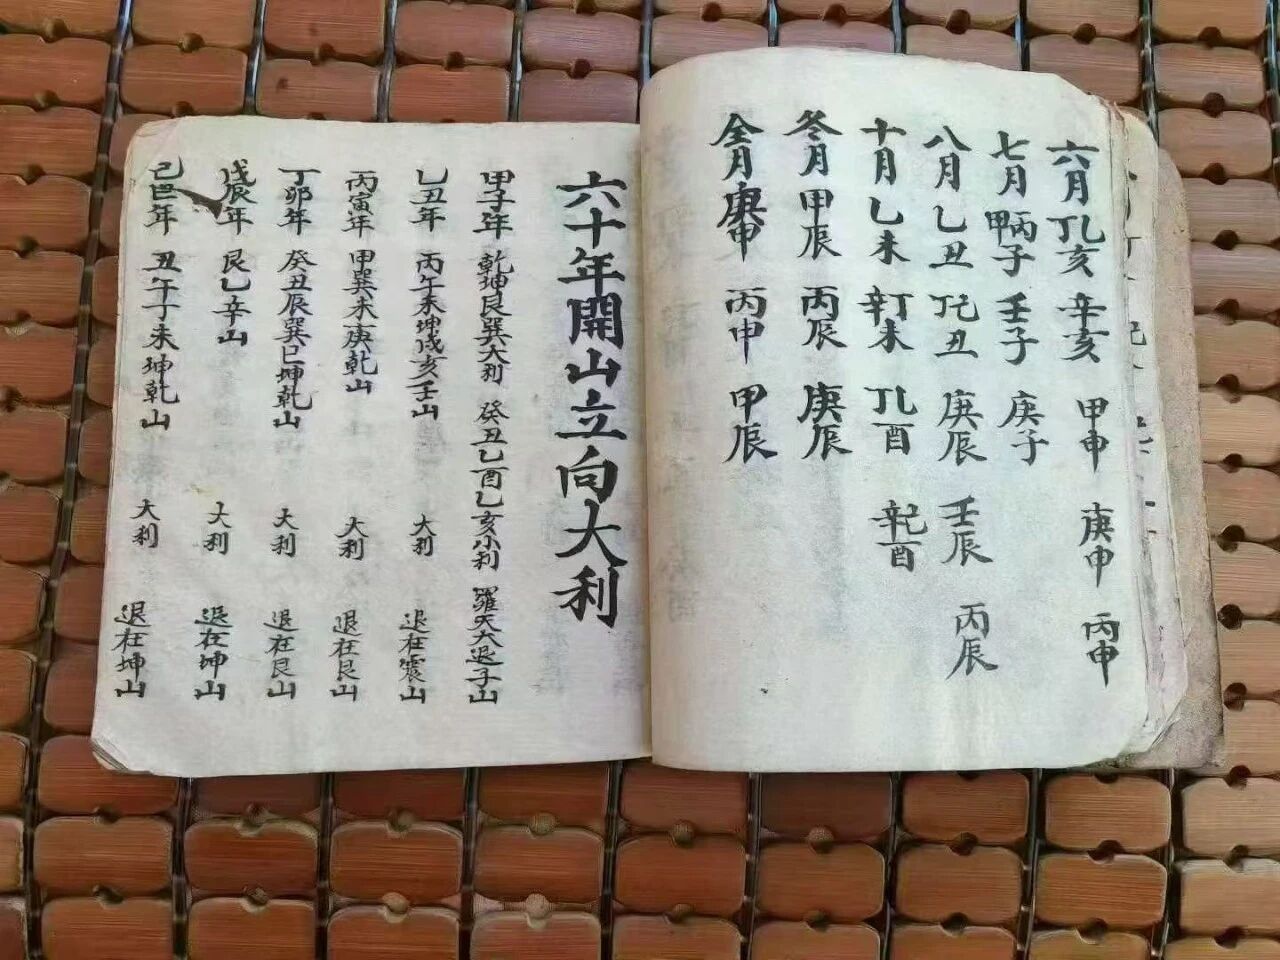 六月 丁乙亥 辛亥 甲申 庚申 丙申
七月 甲丙子 壬子 庚子
八月 乙丑 丁己丑 庚辰 壬辰 丙辰
十月 乙未 辛丁未 丁乙酉 辛己酉
冬月 甲辰 丙辰 庚辰
全月 庚申 丙申 甲辰
六十年開山立向大利
甲子年 乾坤艮巽大利 癸丑乙酉乙亥小利 羅天大退子山
乙丑年 丙午未坤戌亥壬山 大利 退在震山
丙寅年 甲巽未庚乾山 大利 退在艮山
丁卯年 癸丑辰巽巳坤乾山 大利 退在艮山
戊辰年 艮乙辛山 大利 退在坤山
己巳年 丑午丁未坤乾山 大利 退在坤山